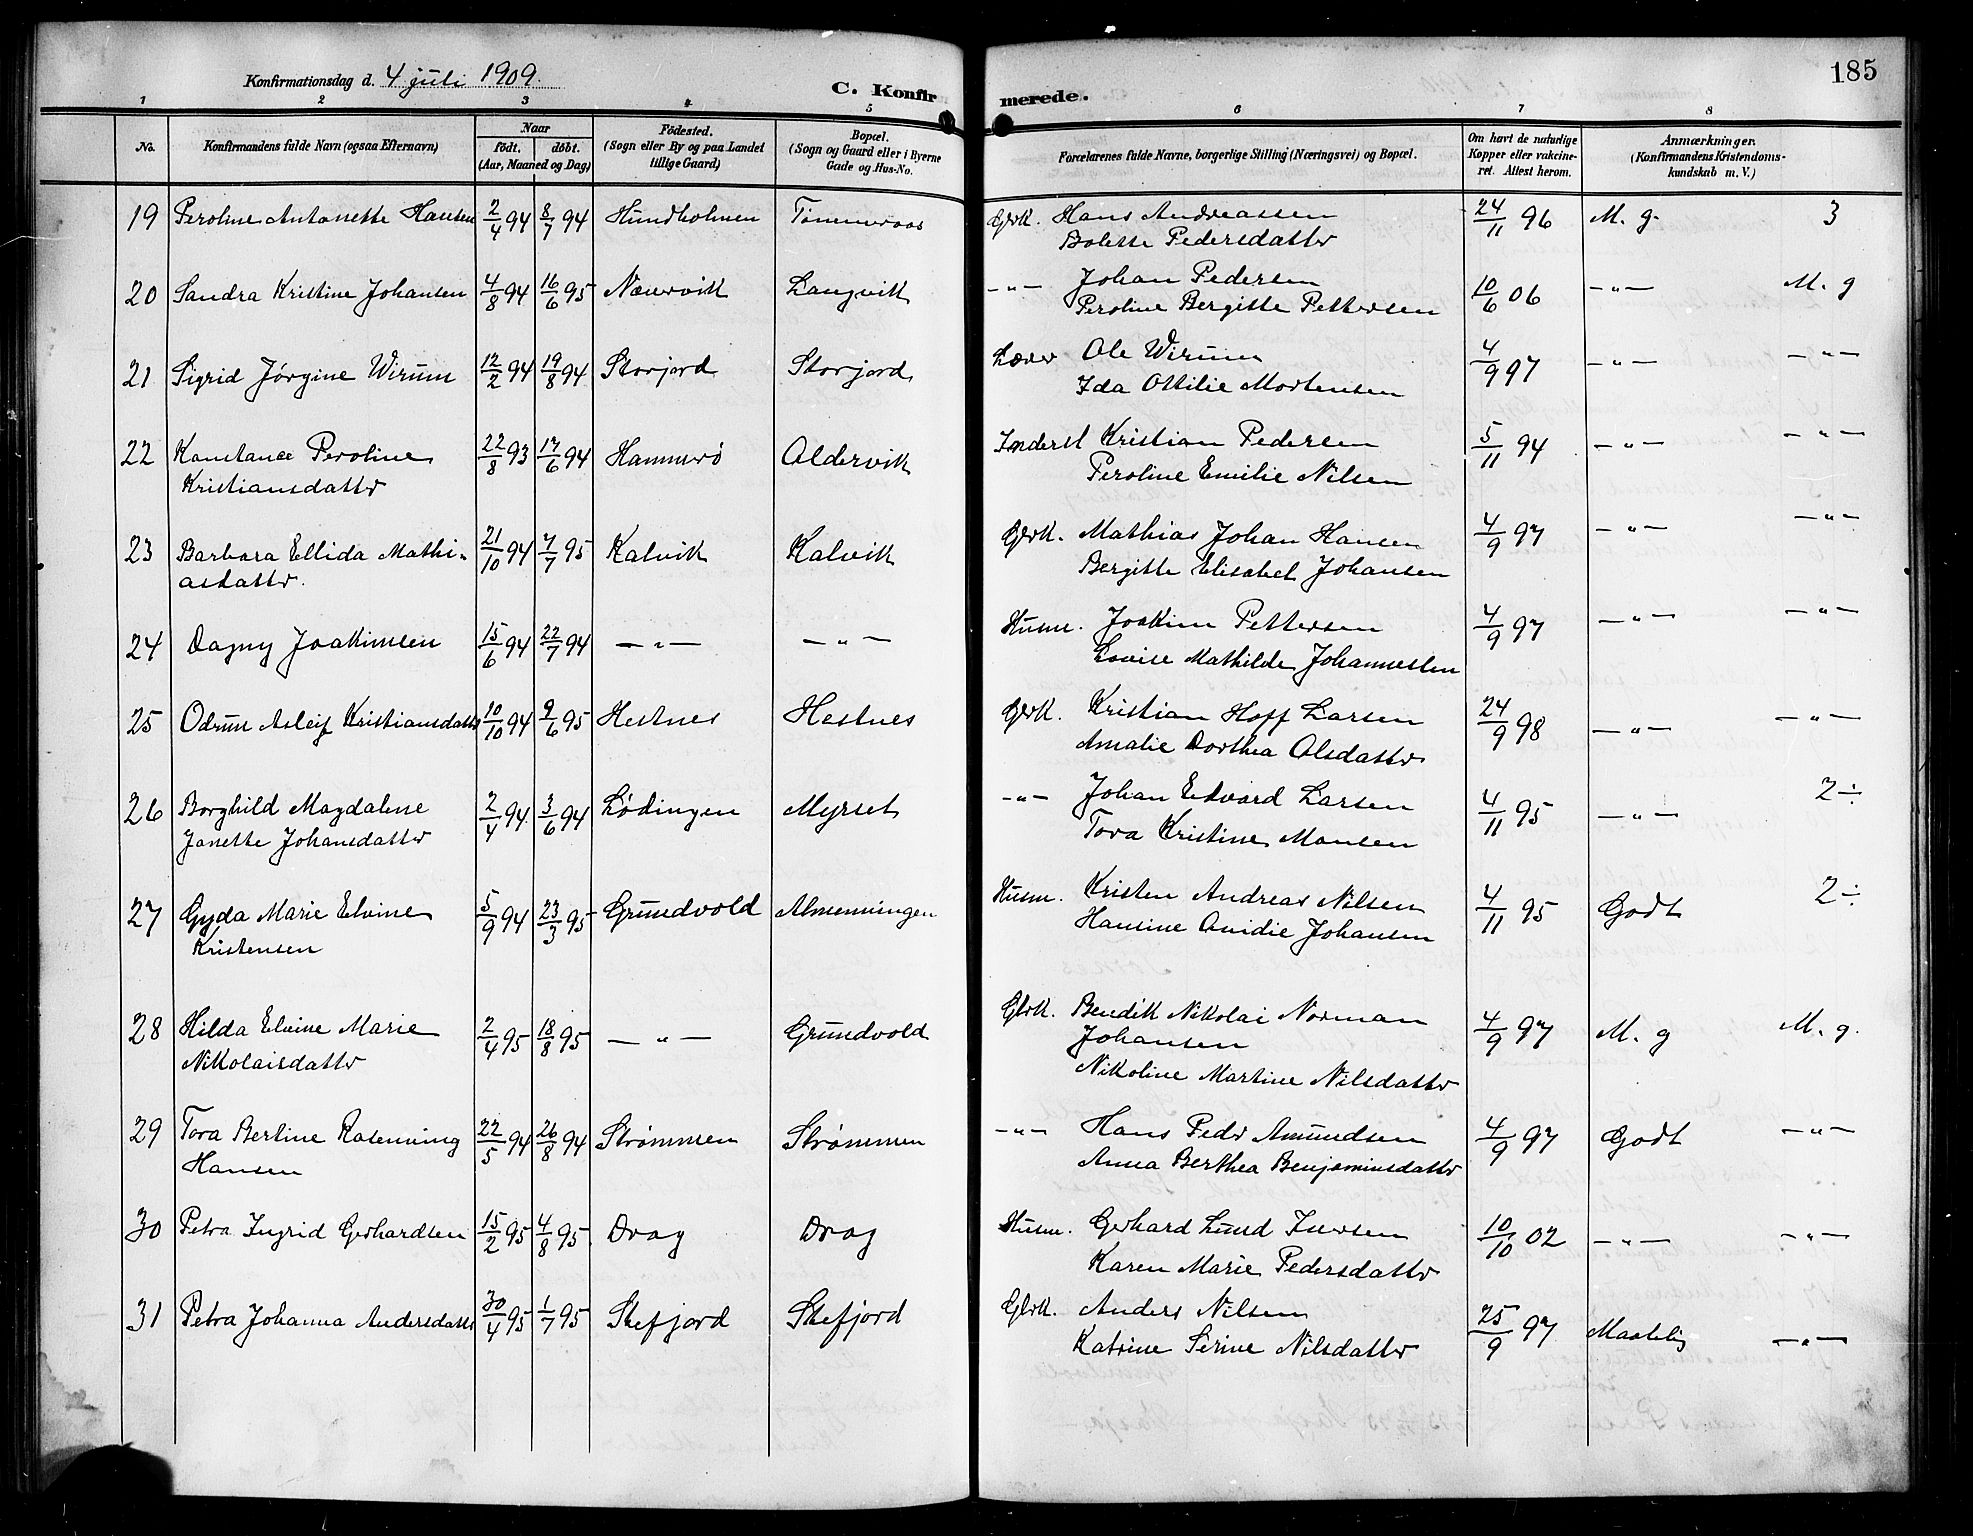 185
Konfirmationsdag d. 4 juli 1909.
C. Konfirmerede.
1 2 3 4 5 6 7 8
No.
Konfirmandens fulde Navn (ogsaa Efternavn)
Naar
födt. döbt.
(Aar, Maaned og Dag)
Födested.
(Sogn eller By og paa Landet
tillige Gaard)
Bopæl.
(Sogn og Gaard eller i Byerne
Gade og Hus-No.
Forælarenes fulde Navne, borgerlige Stilling (Næringsvei) og Bopæl.
Om havt de naturlige
Kopper eller vakcine-
ret. Attest herom.
Anmærkninger.
(Konfirmandens Kristendoms-
kundskab m. V.)
19 Peroline Antonette Hansen 2/4 94 8/7 94 Hundholmen Gbrk. Hans Andreassen 24/11 96 M. g. 3
Bolette Pedersdatter
20 Sandra Kristine Johansen 4/8 94 16/6 95 Nævervik Langvik -"- Johan Pedersen 10/6 06 -"- M. g
Peroline Bergitte Pettersen
21 Sigrid Jörgine Wirum 12/2 94 19/8 94 Storjord Storjord Lærer Ole Wirum 4/9 97 -"- -"-
Ida Ottilie Mortensen
22 Konstance Peroline 22/8 93 17/6 94 Hammerö Aldervik Inderst Kristian Pedersen 5/11 94 -"- -"-
Kristiansdatter Peroline Emilie Nilsen
23 Barbara Ellida Mathi- 21/10 94 7/7 95 Kalvik Kalvik Gbrk. Mathias Johan Hansen 4/9 97 -"- -"-
asdatter. Bergitte Elisabet Johansen
24 Dagny Joakimsen 15/6 94 22/7 94 -"- -"- Husm. Joakim Pettersen 4/9 97 -"- -"-
Lovise Mathilde Johannessen
25 Odrun Asleif Kristiansdatter 10/10 94 9/6 95 Hestnes Hestnes Gbrk. Kristian Hoff Larsen 24/9 98 -"- -"-
Amalie Dorthea Olsdatter
26 Borghild Magdalene 2/4 94 3/6 94 Lödingen Myrset -"- Johan Edvard Larsen 4/11 95 -"- 2÷
Janette Johansdatter Tora Kristine Monsen
27 Gyda Marie Elvine 5/9 94 23/3 95 Grundvold Almenningen Husm. Kristen Andreas Nilsen 4/11 95 Godt 2÷
Kristensen Hansine Ovidie Johansen
28 Hilda Elvine Marie 2/4 95 18/8 95 -"- Grundvold Gbrk. Bendik Nikolai Norman 4/9 97 M. g M. g.
Nikolaisdatter Johansen
Nikoline Martine Nilsdatter
29 Tora Bertine 22/5 94 26/8 94 Strømmen Strømmen -"- Hans Peder Amundsen 4/9 97 Godt -"-
Hansen Anna Berthea Benjaminsdatter
30 Petra Ingrid Gerhardsen 15/2 95 4/8 95 Drag Drag Husm. Gerhard Lund Iversen 10/10 02 -"- -"-
Karen Marie Pedersdatter
31 Petra Johanna Andersdatter 30/4 95 1/7 95 Skefjord Skefjord Gbrk. Anders Nilsen 25/9 97 Maatelig -"-
Katrine Serine Nilsdatter